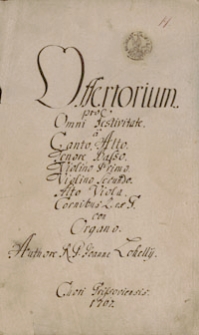 Offertorium.
pro
Omni Festivitate.
a
Canto, Alto,
Tenore Basso.
Violino Primo.
Violino Secundo.
Alto Viola.
Cornibus 2
con
Organo.
Authore R. P. Joanne Lohelly.
Chori
1767.